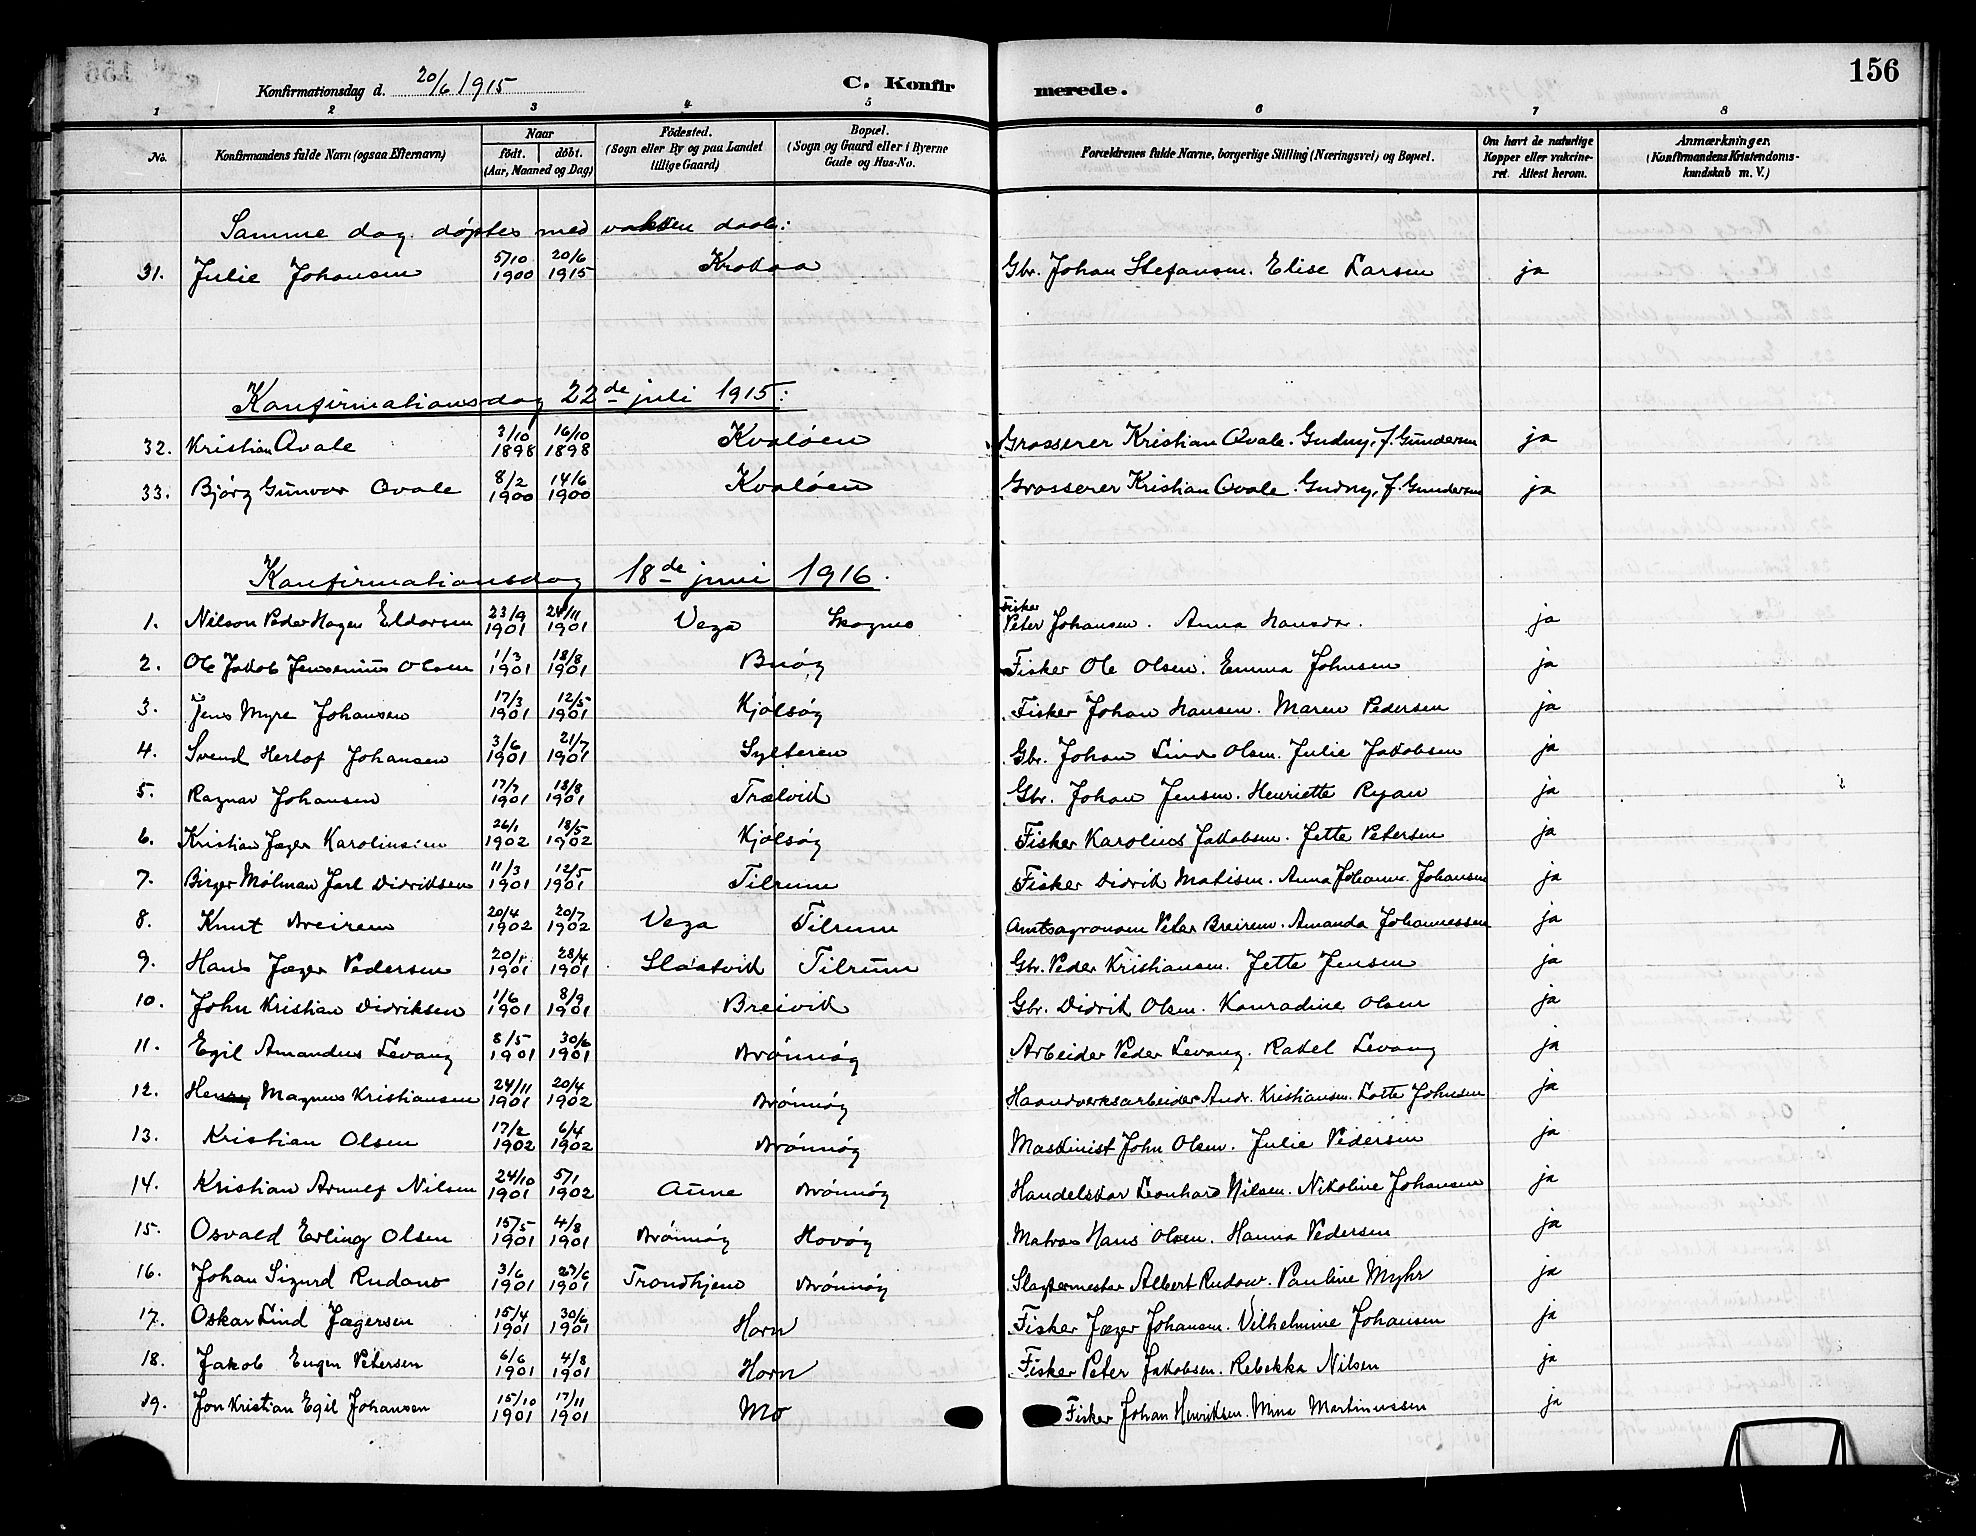 156
Konfirmationsdag d. 20/6 1915
C. Konfirmerede.
1 2 3 4 5 6 7 8
No. | Konfirmandens fulde Navn (ogsaa Efternavn) | Naar født. døbt. (Aar, Maaned og Dag) | Fødested. (Sogn eller By og paa Landet tillige Gaard) | Bopæl. (Sogn og Gaard eller i Byerne Gade og Hus-No. | Forældrenes fulde Navne, borgerlige Stilling (Næringsvei) og Bopæl. | Om havt de naturlige Kopper eller vakcineret. Attest herom. | Anmærkninger. (Konfirmandens Kristendomskundskab m. V.)
Samme dag døptes med voksen daab:
31. Julie Johansen 5/10 1900 20/6 1915 Krokaa Gbr. Johan Stefansen. Elise Larsen ja
Konfirmationsdag 22de juli 1915:
32. Kristian Qvale 3/10 1898 16/10 1898 Kvaløen Grosserer Kristian Qvale. Gudny, f. Gundersen ja
33. Bjørg Gunvor Qvale 8/2 1900 14/6 1900 Kvaløen Grosserer Kristian Qvale. Gudny, f. Gundersen ja
Konfirmationsdag 18de juni 1916.
1. Nilson Peder Hagen Eldorsen 23/9 1901 24/11 1901 Vega Skogmo Fisker Peter Johansen. Anna Hansdr. ja
2. Ole Jakob Jensenius Olsen 1/3 1901 18/8 1901 Buøy Fisker Ole Olsen. Emma Johnsen ja
3. Jens Myre Johansen 17/3 1901 12/5 1901 Kjølsøy Fisker Johan Hansen. Maren Pedersen ja
4. Svend Herlof Johansen 3/6 1901 21/7 1901 Sylteren Gbr. Johan Lind Olsen. Julie Jakobsen ja
5. Ragnar Johansen 17/7 1901 18/8 1901 Trælvik Gbr. Johan Jensen. Henriette Ryan ja
6. Kristian Jæger Karolinsen 26/1 1902 18/5 1902 Kjølsøy Fisker Karolius Jakobsen. Jette Petersen ja
7. Birger Mølman Jarl Didriksen 11/3 1901 12/5 1901 Tilrum Fisker Didrik Matisen. Anna Johanne Johansen ja
8. Knut Breirem 20/4 1902 20/7 1902 Vega Tilrum Amtsagronom Peter Breirem. Amanda Johannessen ja
9. Hans Jæger Pedersen 20/1 1901 28/4 1901 Slaatvik Tilrum Gbr. Peder Kristiansen. Jette Jensen ja
10. John Kristian Didriksen 1/6 1901 8/9 1901 Breivik Gbr. Didrik Olsen. Konradine Olsen ja
11. Egil Amandus Levang 8/5 1901 30/6 1901 Brønnøy Arbeider Peder Levang. Rakel Levang ja
12. Henry Magnus Kristiansen 24/11 1901 20/4 1902 Brønnøy Haandverksarbeider Andr. Kristiansen. Lotte Johnsen ja
13. Kristian Olsen 17/2 1902 6/4 1902 Brønnøy Maskinist John Olsen. Julie Pedersen ja
14. Kristian Arnulf Nilsen 24/10 1901 5/1 1902 Aune Brønnøy Handelskar Leonhard Nilsen. Nikoline Johansen ja
15. Osvald Erling Olsen 15/5 1901 4/8 1901 Brønnøy Havøy Matros Hans Olsen. Hanna Pedersen ja
16. Johan Sigurd Rudow 3/6 1901 27/6 1901 Trondhjem Brønnøy Slagtermester Albert Rudow. Pauline Myhr ja
17. Oskar Lind Jægersen 15/4 1901 30/6 1901 Horn Fisker Jæger Johansen. Vilhelmine Johansen ja
18. Jakob Eugen Petersen 6/6 1901 4/8 1901 Horn Fisker Peter Jakobsen. Rebekka Nilsen ja
19. Jon Kristian Egil Johansen 15/10 1901 17/11 1901 Mo Fisker Johan Henriksen. Mina Martinussen ja